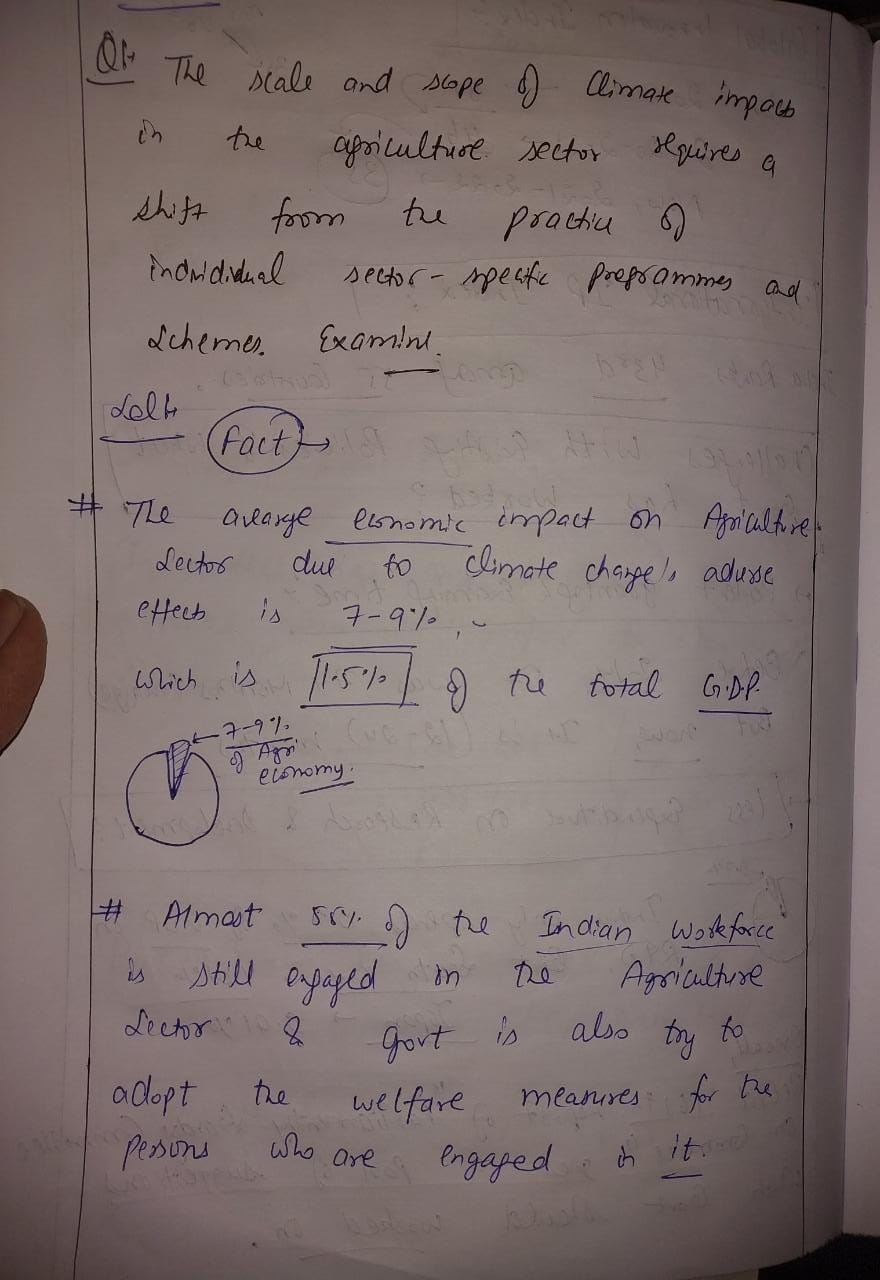 Q1. The scale and scope of climate impacts
in the agriculture sector requires a
shift from the practice of
individual sector-specific programmes and
schemes. Examine.
Sol:-
Fact →
# The average economic impact on Agriculture
sector due to climate change's adverse
effects is 7-9%,
which is 1.5% of the total G.D.P.
7-9%
of Agri
economy.
# Almost 55% of the Indian workforce
is still engaged in the Agriculture
sector & govt is also try to
adopt the welfare measures for the
persons who are engaged in it.